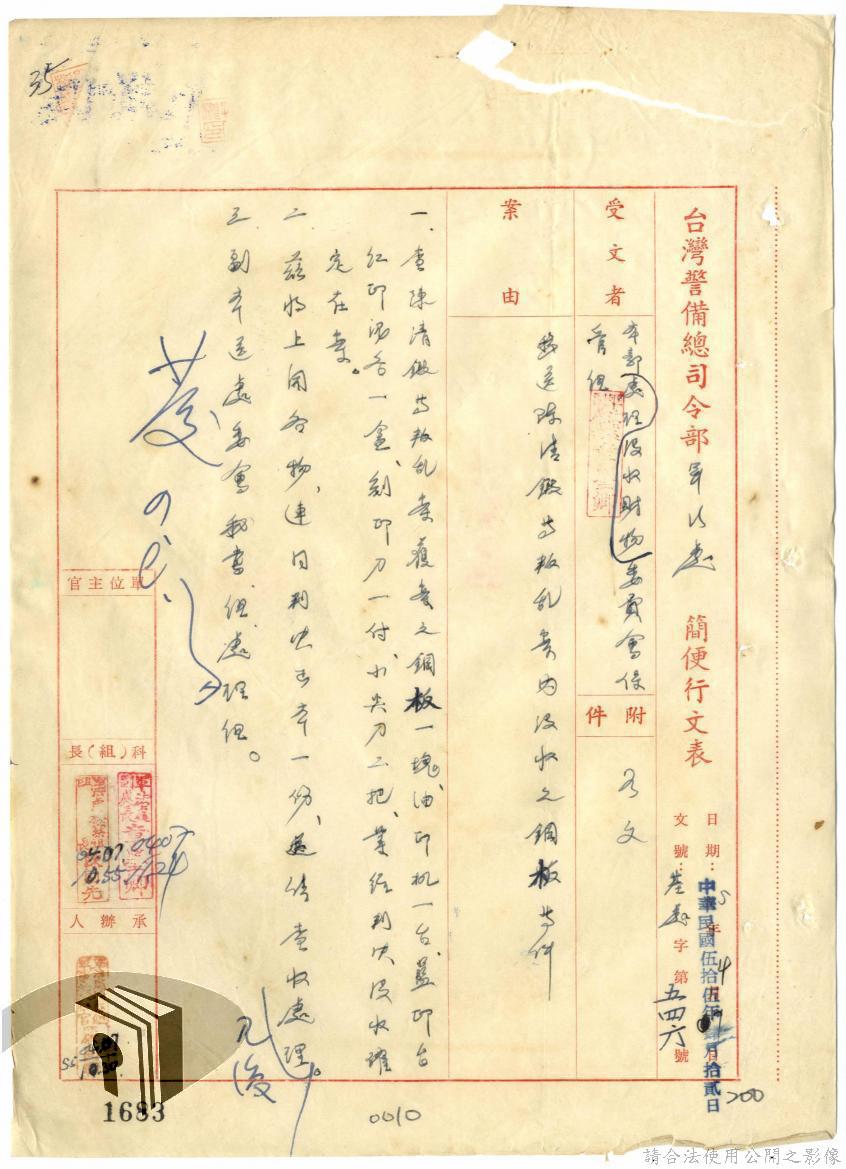 台灣警備總司令部軍法處 簡便行文表
日期：
中華民國伍拾伍年肆月拾貳日
文號： 字第五四六號
受文者
本部處理沒收財物委員會保
管組
附件
如文
案由
移送陳清 等叛乱案內沒收之鋼板等件
一、查陳清 等叛乱案獲案之鋼板一塊、油印机一台、藍印台
紅印泥各一盒、刻印刀一付、小尖刀二把、業經判決沒收確
定在案。
二、茲將上開各物、連同判決正本一份、送請查收處理。
三、副本送處委會秘書組、處理組。
單位主官
科（組）長
承辦人
1683
0010
200
請合法使用公開之影像